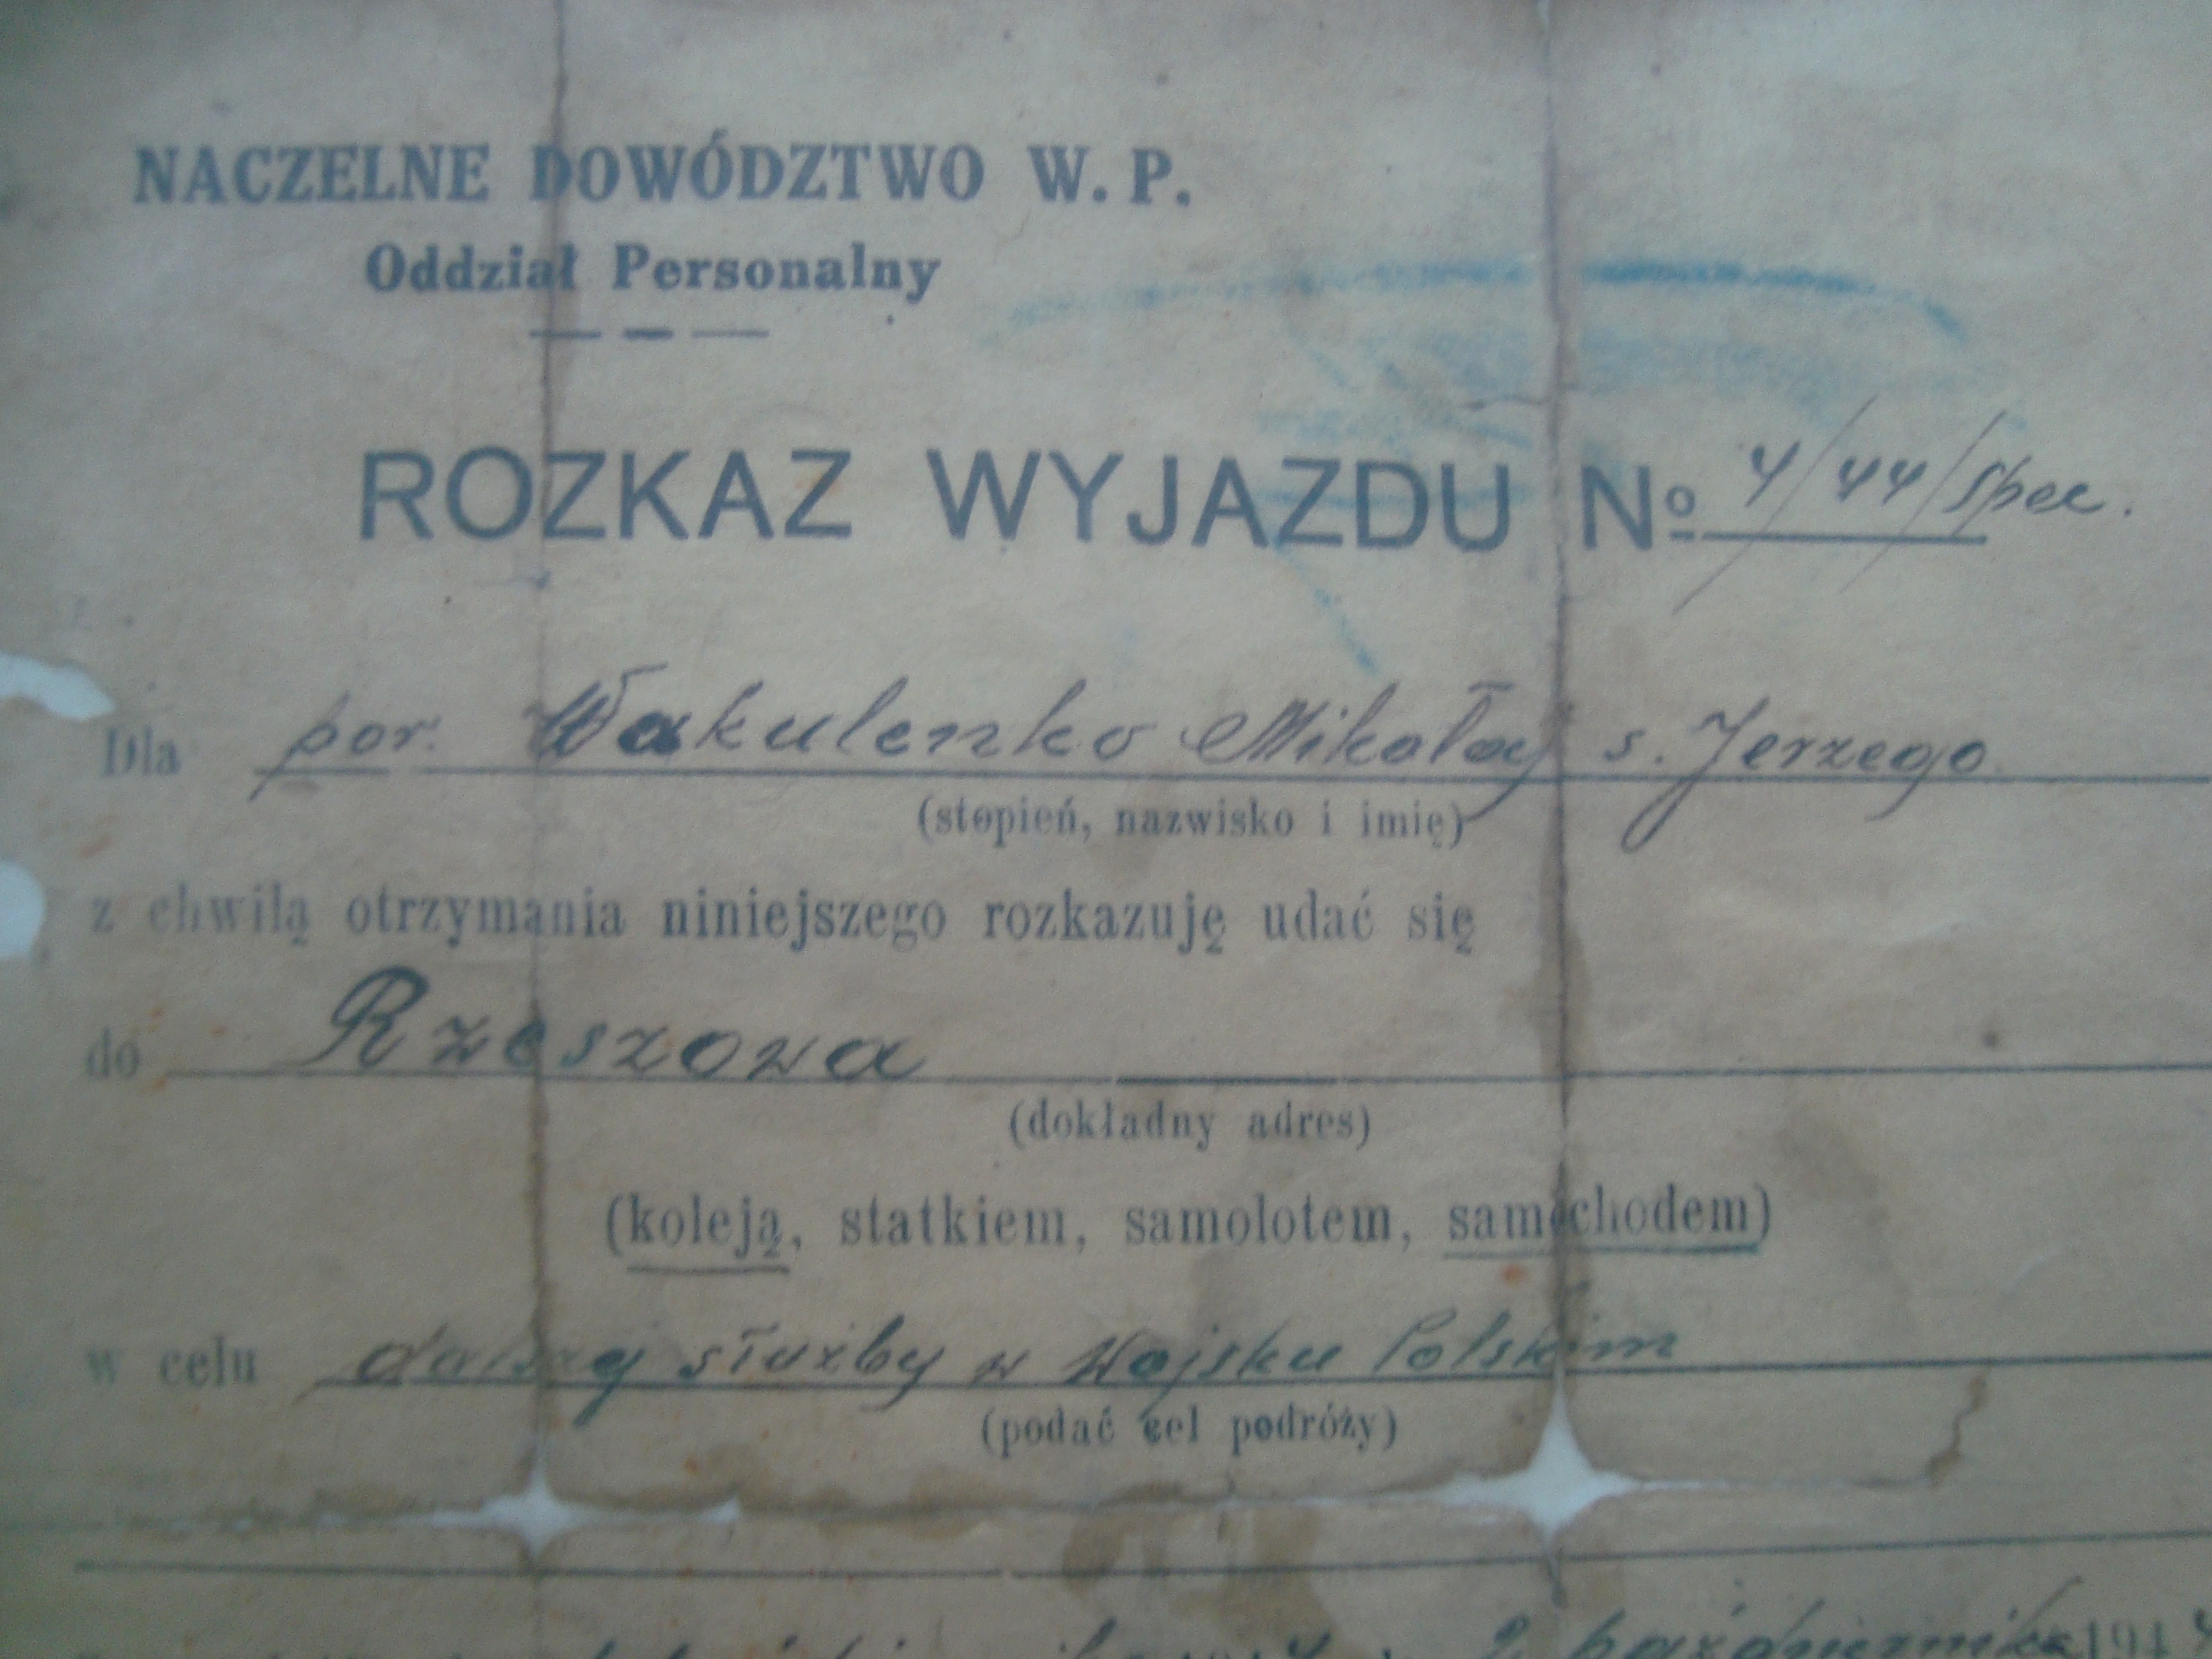 NACZELNE DOWÓDZTWO W. P.
Oddział Personalny
ROZKAZ WYJAZDU Nº 4/44/spec.
Dla por. Wakulenko Mikołaj s. Jerzego
(stopień, nazwisko i imię)
z chwilą otrzymania niniejszego rozkazuję udać się
do Rzeszowa
(dokładny adres)
(koleją, statkiem, samolotem, samochodem)
w celu dalszej służby w Wojsku Polskim
(podać cel podróży)
2 października 194